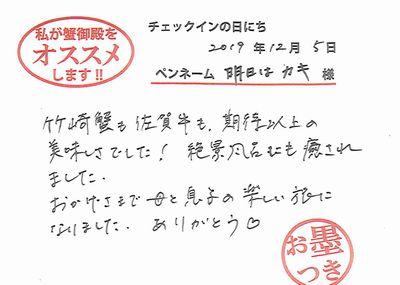 私が蟹御殿を
オススメ
します!!
チェックインの日にち
2019年12月5日
ペンネーム 明日はカキ 様
竹崎蟹も佐賀牛も、期待以上の
美味しさでした！ 絶景風呂にも癒され
ました。
おかげさまで母と息子の楽しい旅に
なりました。 ありがとう♡
お墨
つき